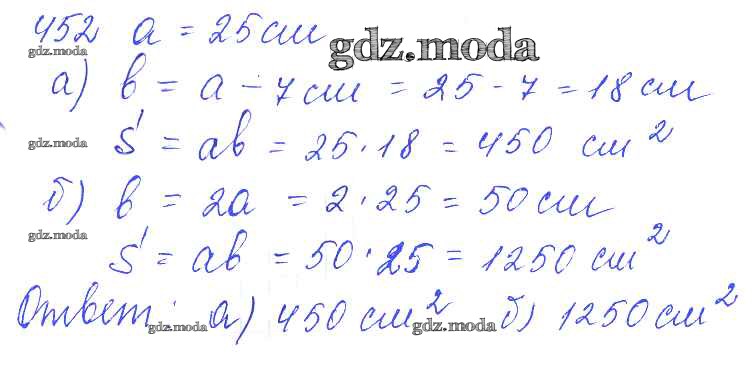 452 a = 25 см
gdz.moda
gdz.moda
а) b = a - 7 см = 25 - 7 = 18 см
gdz.moda
S = ab = 25 · 18 = 450 см²
б) b = 2a = 2 · 25 = 50 см
gdz.moda
S = ab = 50 · 25 = 1250 см²
Ответ: а) 450 см² б) 1250 см²
gdz.moda gdz.moda